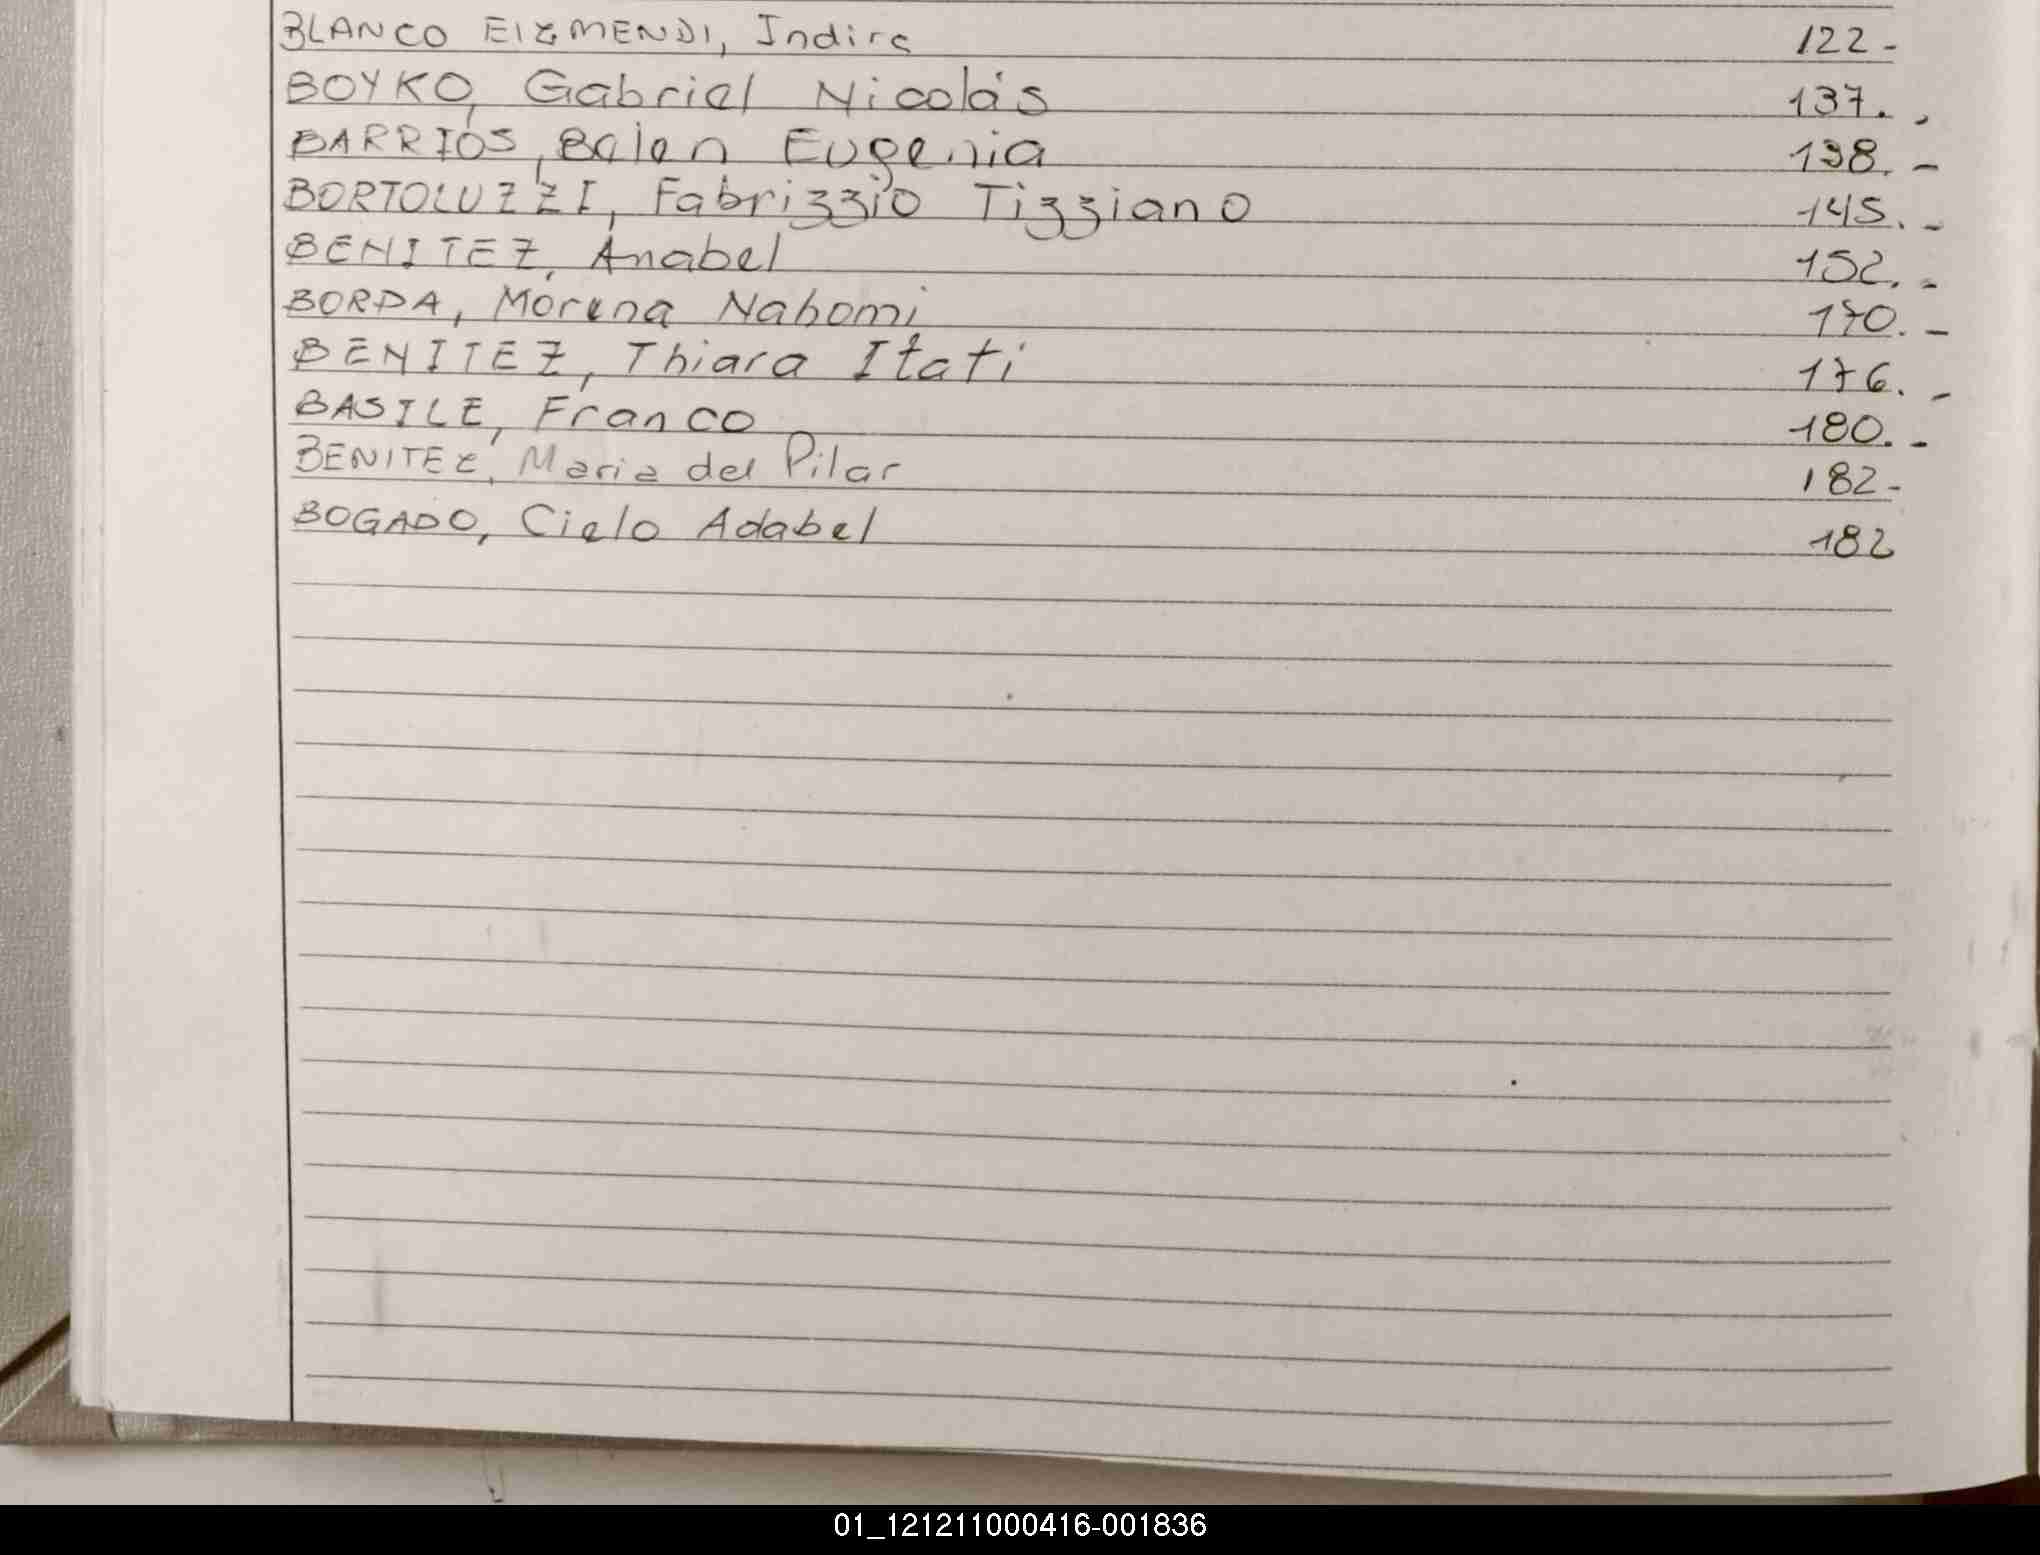 BLANCO EIZMENDI, Indira 122-
BOYKO, Gabriel Nicolás 137.
BARRIOS, Belen Eugenia 138.-
BORTOLUZZI, Fabrizzio Tizziano 145.-
BENITEZ, Anabel 152.-
BORDA, Morena Nahomi 170.-
BENITEZ, Thiara Itati 176.-
BASILE, Franco 180.-
BENITEZ, Maria del Pilar 182-
BOGADO, Cielo Adabel 182
01_121211000416-001836